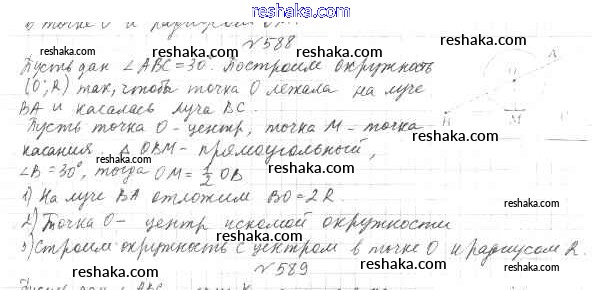 в точке О и радиусом
reshaka.com
№588
Пусть дан ∠ABC = 30. Построим окружность
(O; R) так, чтобы точка О лежала на луче
BA и касалась луча BC.
Пусть точка О - центр, точка М - точка
касания. Δ OBM - прямоугольный,
∠B = 30°, тогда OM = ½ OB
1) На луче BA отложим BO = 2R.
2) Точка О - центр искомой окружности
3) Строим окружность с центром в точке О и радиусом R.
№589
Пусть дан ∠ABC
A
O
B
M
C
reshaka.com
reshaka.com
reshaka.com
reshaka.com
reshaka.com
reshaka.com
reshaka.com
reshaka.com
reshaka.com
reshaka.com
reshaka.com
reshaka.com
reshaka.com
reshaka.com